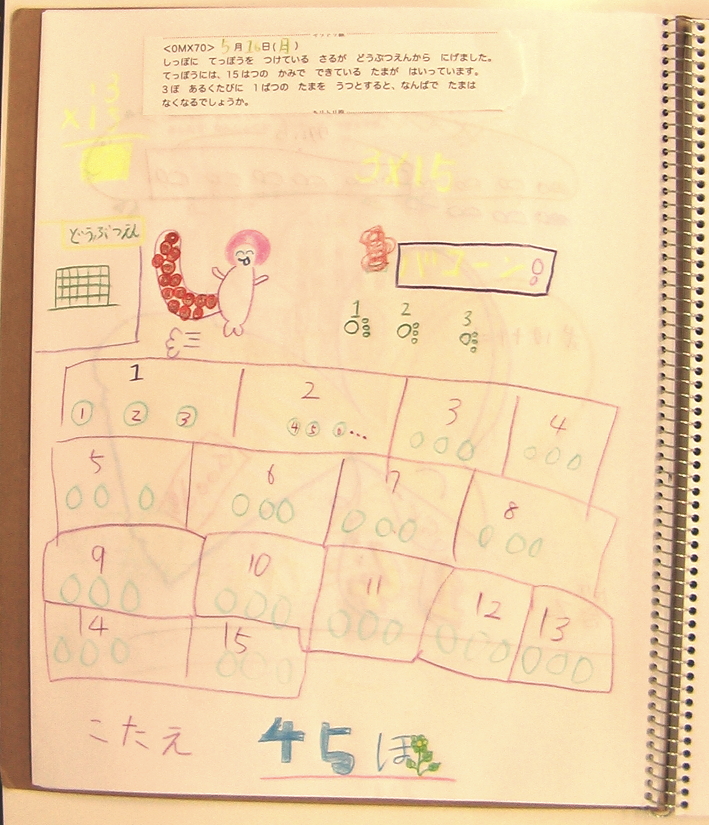 <0MX70> 5月16日(月)
しっぽに てっぽうを つけている さるが どうぶつえんから にげました。
てっぽうには、15はつの かみで できている たまが はいっています。
3ぽ あるくたびに 1ぱつの たまを うつとすると、なんぽで たまは
なくなるでしょうか。
13
×15
3×15
どうぶつえん
バコーン!
1 2 3
1 2 3 4
① ② ③ ④ ⑤ ⑥...
5 6 7 8
9 10 11 12 13
14 15
こたえ 45ほ